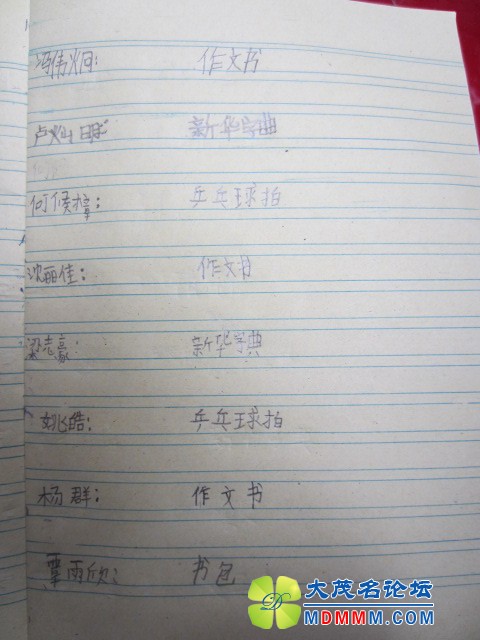 冯伟炯: 作文书
卢灿明 新华字典
何候樟: 乒乓球拍
沈丽佳: 作文书
梁志豪: 新华字典
姚皓: 乒乓球拍
杨群: 作文书
覃雨欣: 书包
大茂名论坛
MDMMM.COM